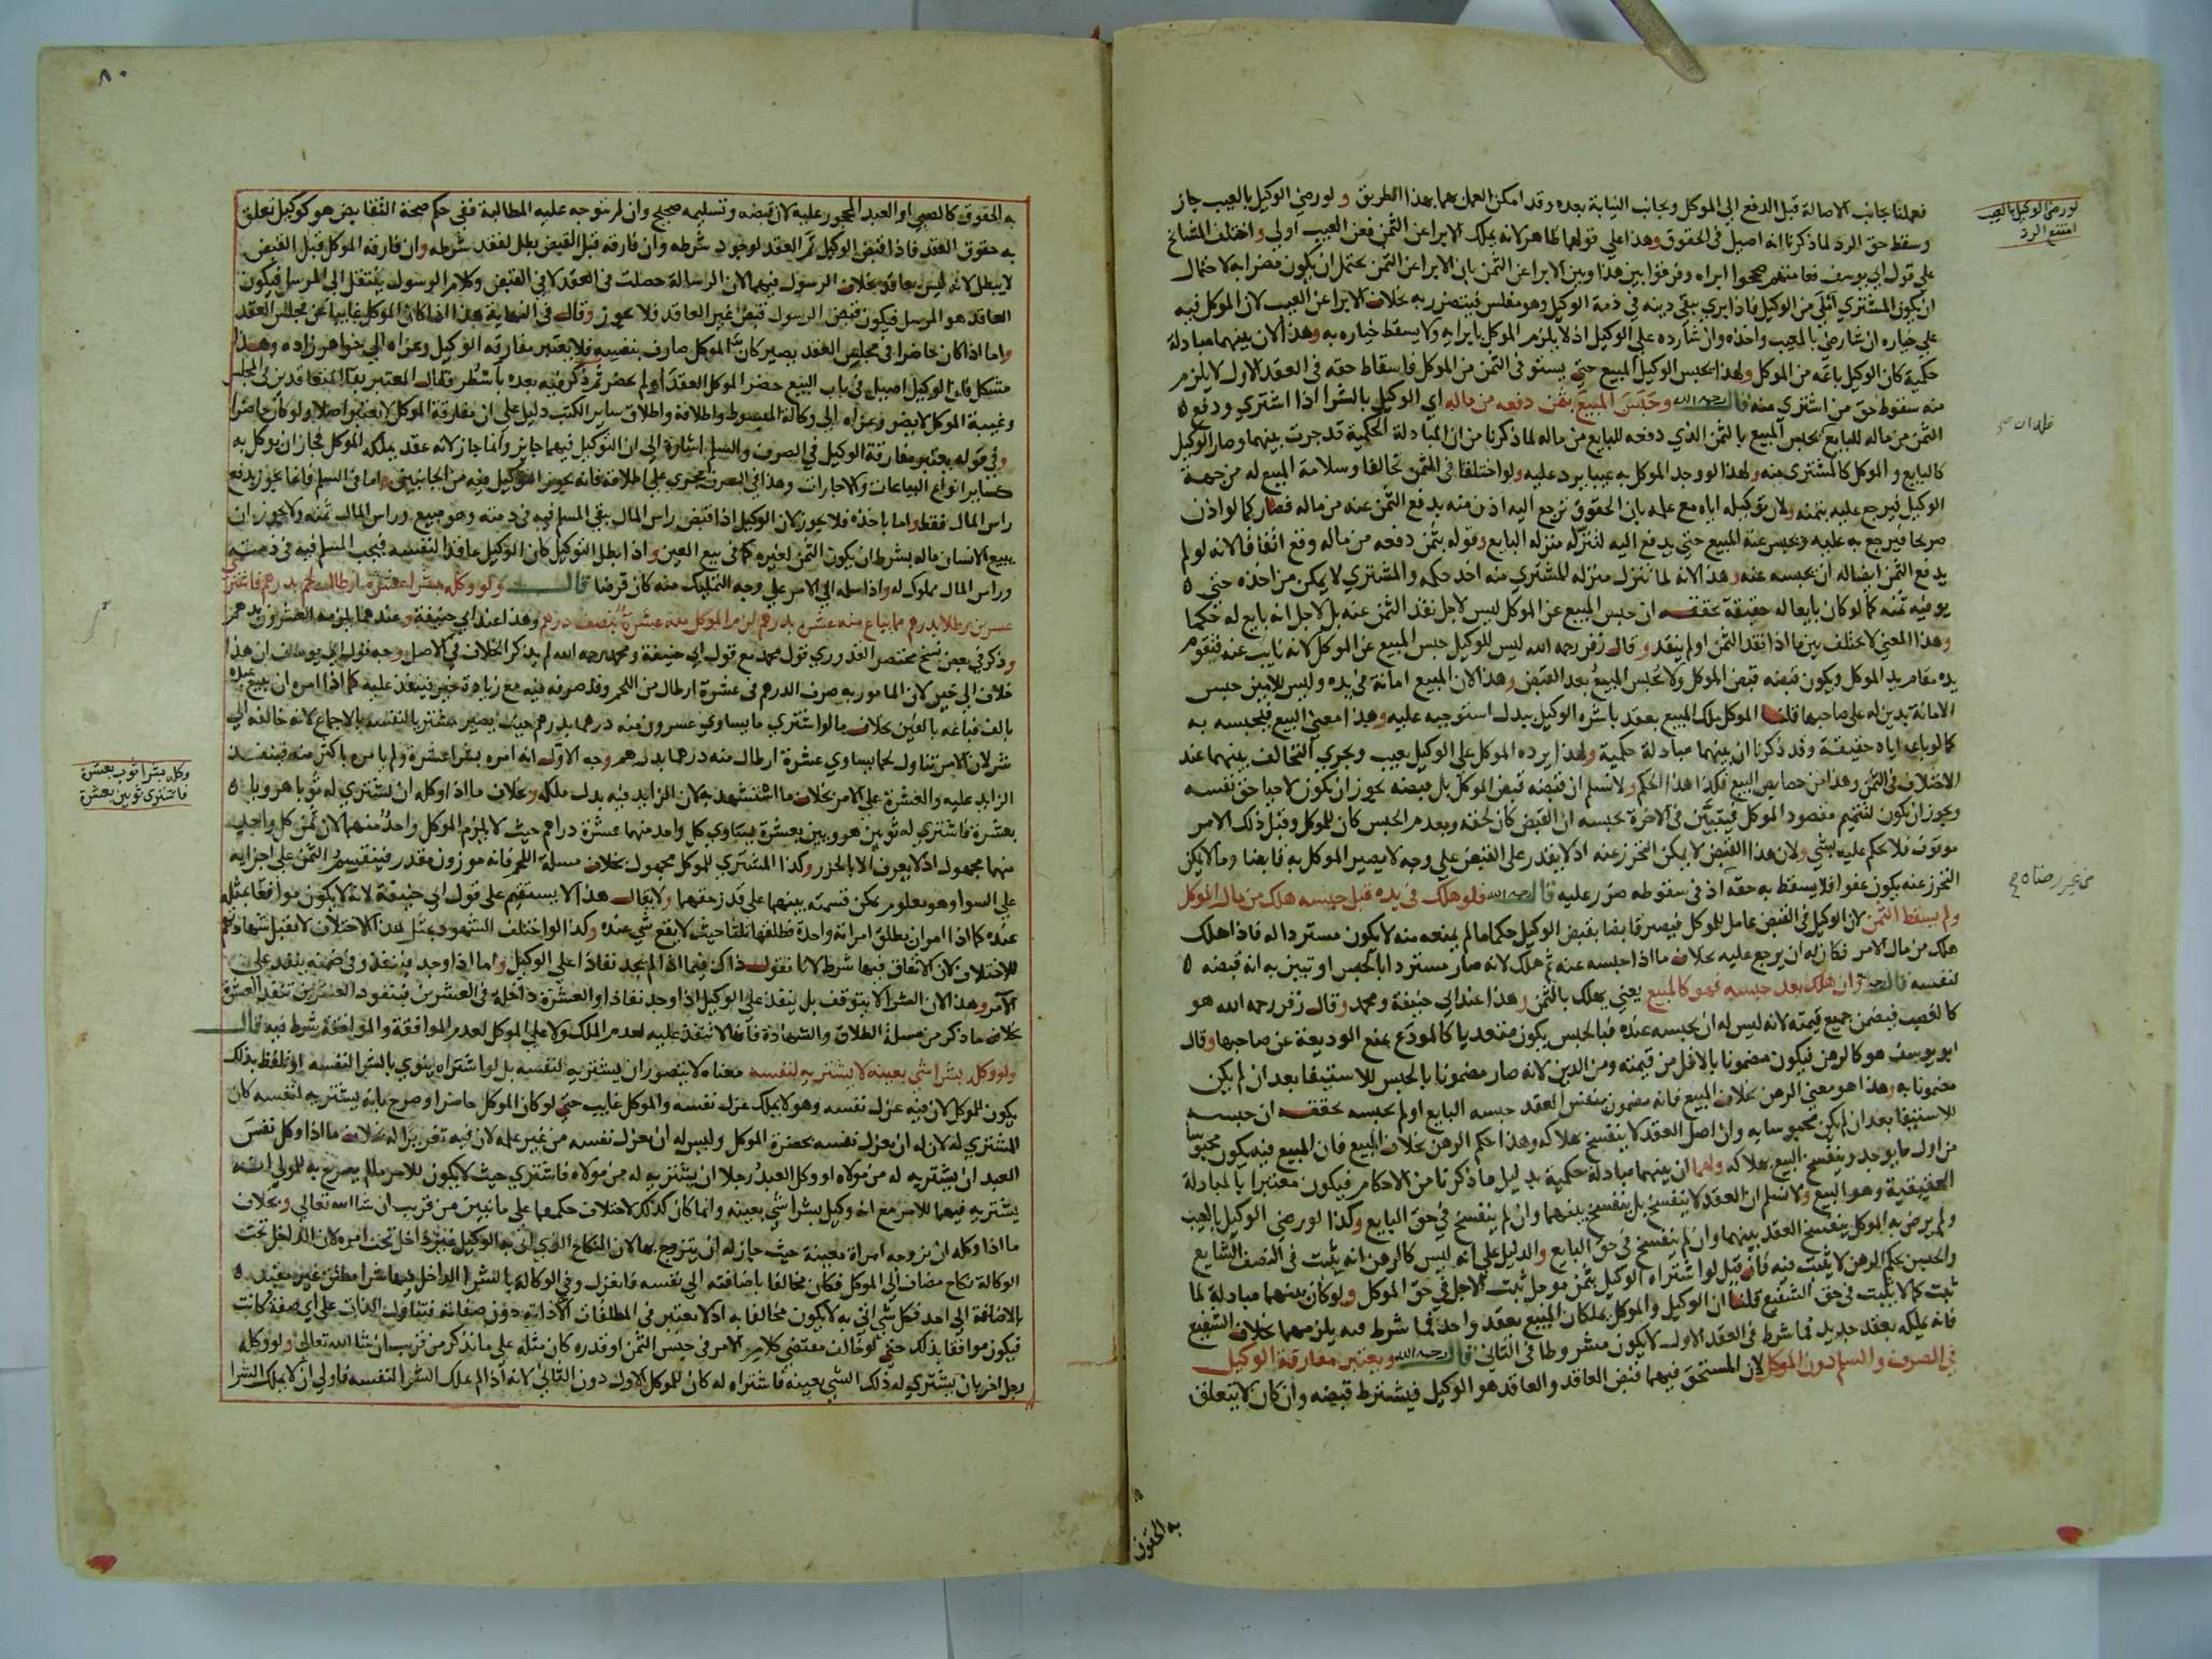 لو رضي الوكيل بالعيب
امتنع الرد
فعملنا بجانب الاصالة قبل الدفع الى الموكل وبجانب النيابة بعده وقد امكن العمل بهما بهذا الطريق ولو رضي الوكيل بالعيب جاز
وسقط حق الرد لما ذكرنا انه اصيل في الحقوق وهذا على قولهما ظاهر لانه يملك الابراء عن الثمن فعن العيب اولى واختلف المشايخ
على قول ابي يوسف فعامتهم صححوا ابراه وفرقوا بين هذا وبين الابراء عن الثمن بان الابراء عن الثمن يحتمل ان يكون مضرا به لاحتمال
ان يكون المشتري املى من الوكيل فاذا ابري يبقى دينه في ذمة الوكيل وهو مفلس فيتضرر به بخلاف الابرا عن العيب لان الموكل فيه
على خياره ان شا رضي بالمعيب واخذه وان شا رده على الوكيل اذ لا يلزم الموكل بابرايه ولا يسقط خياره به وهذا لان بينهما مبادلة
حكمية كان الوكيل باعه من الموكل ولهذا يحبس الوكيل المبيع حتى يستوفي الثمن من الموكل فاسقاط حقه في العقد الاول لا يلزم
منه سقوط حق من اشترى منه قال رحمه الله وحبس المبيع بثمن دفعه من ماله اي الوكيل بالشرا اذا اشترى ودفع
الثمن من ماله للبايع يحبس المبيع بالثمن الذي دفعه للبايع من ماله لما ذكرنا من ان المبادلة الحكمية قد جرت بينهما وصار الوكيل
كالبايع والموكل كالمشتري منه ولهذا لو وجد الموكل به عيبا يرد عليه ولو اختلفا في الثمن تحالفا وسلامة المبيع له من جهة
الوكيل فيرجع عليه بثمنه ولان توكيله اياه مع علمه بان الحقوق ترجع اليه اذن منه بدفع الثمن عنه من ماله فصار كما لو اذن
صريحا فيرجع به عليه ويحبس عنه المبيع حتى يدفع اليه لتنزله منزلة البايع وقوله بثمن دفعه من ماله وقع اتفاقا لانه لو لم
يدفع الثمن ايضا له ان يحبسه عنه وهذا لانه لما تنزل منزلة المشتري منه اخذ حكمه والمشتري لا يمكن من اخذه حتى
يوفيه ثمنه كما لو كان بايعا له حقيقة تحققه ان حبس المبيع عن الموكل ليس لاجل نقد الثمن عنه بل لاجل انه بايع له حكما
وهذا المعنى لا يختلف بين ما اذا نقد الثمن او لم ينقد وقال زفر رحمه الله ليس للوكيل حبس المبيع عن الموكل لانه نايب عنه فتقوم
يده مقام يد الموكل ويكون قبضه قبض الموكل ولا يحبس المبيع بعد القبض وهذا لان المبيع امانة في يده وليس للامين حبس
الامانة بدين له على صاحبها قلنا الموكل ملك المبيع بعقد باشره الوكيل ببدل استوجبه عليه وهذا معنى البيع فيحبسه به
كما لو باعه اياه حقيقة وقد ذكرنا ان بينهما مبادلة حكمية ولهذا يرده الموكل على الوكيل بعيب ويجري التحالف بينهما عند
الاختلاف في الثمن وهذا من خصايص البيع فكذا هذا الحكم ولا نسلم ان قبضه قبض الموكل بل قبضه يجوز ان يكون لاحيا حق نفسه
ويجوز ان يكون لتتميم مقصود الموكل فيتبين في الاخرة بحبسه ان القبض كان لحقه وبعدم الحبس كان للموكل وقبل ذلك الامر
موقوف فلا يحكم عليه بشي ولان هذا القبض لا يمكن التحرز عنه اذ لا يقدر على القبض على وجه لا يصير الموكل به قابضا وما لا يمكن
التحرز عنه يكون عفوا فلا يسقط به حقه اذ في سقوطه ضرر عليه قال رحمه الله فلو هلك في يده قبل حبسه هلك من مال الموكل
ولم يسقط الثمن لان الوكيل في القبض عامل للموكل فيصير قابضا بقبض الوكيل حكما ما لم يمنعه منه لا يكون مستردا له فاذا هلك
هلك من مال الامر فكان له ان يرجع عليه بخلاف ما اذا حبسه عنه ثم هلك لانه صار مستردا بالحبس او تبين به انه قبضه
لنفسه قال وان هلك بعد حبسه فهو كالمبيع يعني يهلك بالثمن وهذا عند ابي حنيفة ومحمد وقال زفر رحمه الله هو
كالغصب فيضمن جميع قيمته لانه ليس له ان يحبسه عنده فبالحبس يكون متعديا كالمودع بمنع الوديعة عن صاحبها وقال
ابو يوسف هو كالرهن فيكون مضمونا بالاقل من قيمته ومن الدين لانه صار مضمونا بالحبس للاستيفا بعد ان لم يكن
مضمونا به وهذا هو معنى الرهن بخلاف المبيع فانه مضمون بنفس العقد حبسه البايع او لم يحبسه تحققه ان حبسه
للاستيفا بعد ان لم يكن محبوسا به وان اصل العقد لا ينفسخ بهلاكه وهذا حكم الرهن بخلاف المبيع فان المبيع فيه يكون محبوسا
من اول ما يوجد وينفسخ البيع بهلاكه ولهما ان بينهما مبادلة حكمية بدليل ما ذكرنا من الاحكام فيكون معتبرا بالمبادلة
الحقيقية وهو البيع ولا نسلم ان العقد لا ينفسخ بل ينفسخ بينهما وان لم ينفسخ في حق البايع وكذا لو رضي الوكيل بالعيب
ولم يرض به الموكل ينفسخ العقد بينهما وان لم ينفسخ في حق البايع والدليل على انه ليس كالرهن انه يثبت في النصف الشايع
والحبس بحكم الرهن لا يثبت فيه فان قيل لو اشتراه الوكيل بثمن موجل ثبت الاجل في حق الموكل ولو كان بينهما مبادلة لما
ثبت كما لا يثبت في حق الشفيع قلنا ان الوكيل والموكل يملكان المبيع بعقد واحد فما شرط فيه يلزمهما بخلاف الشفيع
فانه يملكه بعقد جديد فما شرط في العقد الاول لا يكون مشروطا في الثاني قال رحمه الله ويعتبر مفارقة الوكيل
في الصرف والسلم دون الموكل لان المستحق فيهما قبض العاقد والعاقد هو الوكيل فيشترط قبضه وان كان لا يتعلق
به الحقوق
٨٠
به الحقوق كالصبي او العبد المحجور عليه لان قبضه وتسليمه صحيح وان لم يتوجه عليه المطالبة ففي حكم صحة التقابض هو كوكيل تعلق
به حقوق العقد فاذا قبض الوكيل تم العقد لوجود شرطه وان فارقه قبل القبض بطل لفقد شرطه وان فارقه الموكل قبل القبض
لا يبطل لانه ليس بعاقد بخلاف الرسول فيهما لان الرسالة حصلت في العقد لا في القبض وكلام الرسول ينتقل الى المرسل فيكون
العاقد هو المرسل فيكون قبض الرسول قبض غير العاقد فلا يجوز وقال في النهاية هذا اذا كان الموكل غايبا عن مجلس العقد
واما اذا كان حاضرا في مجلس العقد يصير كان الموكل صارف بنفسه فلا يعتبر مفارقة الوكيل وعزاه الى خواهر زاده وهذا
مشكل فان الوكيل اصيل في باب البيع حضر الموكل العقد او لم يحضر ثم ذكر فيه بعده باسطر فقال المعتبر بقا المتعاقدين في المجلس
وغيبة الموكل لا يضر وعزاه الى وكالة المبسوط واطلاقه واطلاق ساير الكتب دليل على ان مفارقة الموكل لا يعتبر اصلا ولو كان حاضرا
وفي قوله يعتبر مفارقة الوكيل في الصرف والسلم اشارة الى ان التوكيل فيهما جايز وانما جاز لانه عقد يملكه الموكل فجاز ان يوكل به
كساير انواع البياعات والاجارات وهذا في الصرف يجري على اطلاقه فانه يجوز التوكيل فيه من الجانبين واما في السلم فانما يجوز بدفع
راس المال فقط واما باخذه فلا يجوز لان الوكيل اذا قبض راس المال بقي المسلم فيه في ذمته وهو مبيع وراس المال ثمنه ولا يجوز ان
يبيع الانسان ماله بشرط ان يكون الثمن لغيره كما في بيع العين واذا بطل التوكيل كان الوكيل عاقدا لنفسه فيجب المسلم فيه في ذمته
وراس المال مملوك له واذا سلمه الى الامر على وجه التمليك منه كان قرضا قال ولو وكله بشرا عشرة ارطال لحم بدرهم فاشترى
عشرين رطلا بدرهم مما يباع منه عشرة بدرهم لزم الموكل منه عشرة بنصف درهم وهذا عند ابي حنيفة وعندهما يلزمه العشرون بدرهم
وذكر في بعض نسخ مختصر القدوري قول محمد مع قول ابي حنيفة ومحمد رحمه الله لم يذكر الخلاف في الاصل وجه قول ابي يوسف ان هذا
خلاف الى خير لان المامور به صرف الدرهم في عشرة ارطال من اللحم وقد صرفه فيه مع زيادة خير فينفذ عليه كما اذا امره ان يبيع عبده
بالف فباعه بالفين بخلاف ما لو اشترى ما يساوي عشرون منه درهما بدرهم حيث يصير مشتريا لنفسه بالاجماع لانه خالفه الى
شر لان الامر تناول لحما يساوي عشرة ارطال منه درهما بدرهم وجه الاول انه امره بشرا عشرة ولم يامره باكثر منه فينفذ
الزايد عليه والعشرة على الامر بخلاف ما استشهد به لان الزايد فيه بدل ملكه وبخلاف ما اذا وكله ان يشتري له ثوبا هرويا
بعشرة فاشترى له ثوبين هرويين بعشرة يساوي كل واحد منهما عشرة دراهم حيث لا يلزم الموكل واحد منهما لان ثمن كل واحد
منهما مجهول اذ لا يعرف الا بالحزر وكذا المشترى للموكل مجهول بخلاف مسلة اللحم فانه موزون مقدر فينقسم الثمن على اجزايه
على السوا وهو معلوم يمكن قسمته بينهما على قدر حقهما ولا يقال هذا لا يستقيم على قول ابي حنيفة لانه لا يكون موافقا بمثله
عنده كما اذا امر ان يطلق امراته واحدة فطلقها ثلاثا حيث لا يقع شي عنده وكذا لو اختلف الشهود بمثل هذا الاختلاف لا تقبل شهادتهم
للاختلاف لان الاتفاق فيها شرط لانا نقول ذاك فيما اذا لم يجد نفاذا على الوكيل واما اذا وجد فينفذ وفي ضمنه ينفذ على
الامر وهذا لان الشرا لا يتوقف بل ينفذ على الوكيل اذا وجد نفاذا والعشرة داخلة في العشرين فبنفوذ العشرين تنفذ العشرة
بخلاف ما ذكر من مسلة الطلاق والشهادة فانها لا تنفذ عليه لعدم الملك ولا على الموكل لعدم الموافقة والموافقة شرط فيه قال
ولو وكله بشرا شي بعينه لا يشتريه لنفسه معناه لا يتصور ان يشتريه لنفسه بل لو اشتراه ينوي بالشرا لنفسه او تلفظ بذلك
يكون للموكل لان فيه عزل نفسه وهو لا يملك عزل نفسه والموكل غايب حتى لو كان الموكل حاضرا وصرح بانه يشتريه لنفسه كان
المشترى له لان له ان يعزل نفسه بحضرة الموكل وليس له ان يعزل نفسه من غير علمه لان فيه تغريرا له بخلاف ما اذا وكل نفس
العبد ان يشتريه له من مولاه او وكل العبد رجلا ان يشتريه له من مولاه فاشترى حيث لا يكون للامر ما لم يصرح به للمولى انه
يشتريه فيهما للامر مع انه وكيل بشرا شي بعينه وانما كان كذلك لاختلاف حكمهما على ما نبين من قريب ان شا الله تعالى وبخلاف
ما اذا وكله ان يزوجه امراة معينة حيث جاز له ان يتزوج بها لان النكاح الذي اتى به الوكيل غير داخل تحت امره لان الداخل تحت
الوكالة نكاح مضاف الى الموكل فكان مخالفا باضافته الى نفسه فانعزل وفي الوكالة بالشرا الداخل فيها شرا مطلق غير مقيد
بالاضافة الى احد فكل شي اتى به لا يكون مخالفا به اذ لا يعتبر في المطلقات الا ذاته دون صفاته فتتناول الذات على اي صفة كانت
فيكون موافقا بذلك حتى لو خالف مقتضى كلام الامر في جنس الثمن او قدره كان مثله على ما نذكر من قريب ان شا الله تعالى ولو وكله
رجل اخر بان يشتري له ذلك الشي بعينه فاشتراه له كان للموكل الاول دون الثاني لانه اذا لم يملك الشرا لنفسه فاولى ان لا يملك الشرا
وكله بشرا ثوب بعشرة
فاشترى ثوبين بعشرة